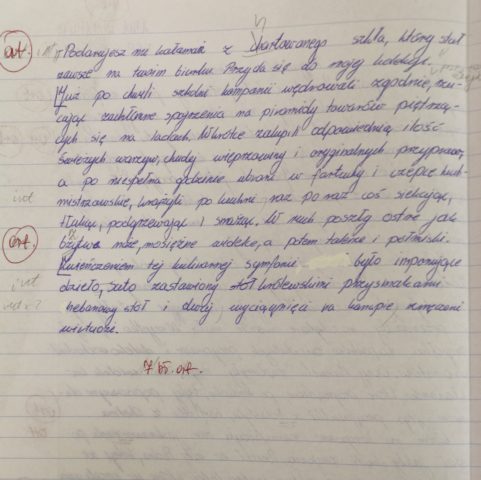 ort. Podarujesz mi kałamarz z hartowanego szkła, który stał
zawsze na twoim biurku. Przyda się do mojej kolekcji.
Już po chwili szkolni kompani wędrowali zgodnie, rzu-
cając zachłanne spojrzenia na piramidy towarów piętrzą-
cych się na ladach. Wkrótce zakupili odpowiednią ilość
świeżych warzyw, chudej wieprzowiny i oryginalnych przypraw,
a po niespełna godzinie ubrani w fartuchy i czepce kuch-
int mistrzowskie, krążyli po kuchni raz po raz coś siekając,
tłukąc, podgrzewając i smażąc. W ruch poszły ostre jak
ort. brzytwa noże, mosiężne widelce, a potem talerze i półmiski.
int Zwieńczeniem tej kulinarnej symfonii było imponujące
dzieło, suto zastawiony stół królewskimi przysmakami
hebanowy stół i dwaj, wyciągnięci na kanapie, zmęczeni
wirtuozi.
7 bł. ort.